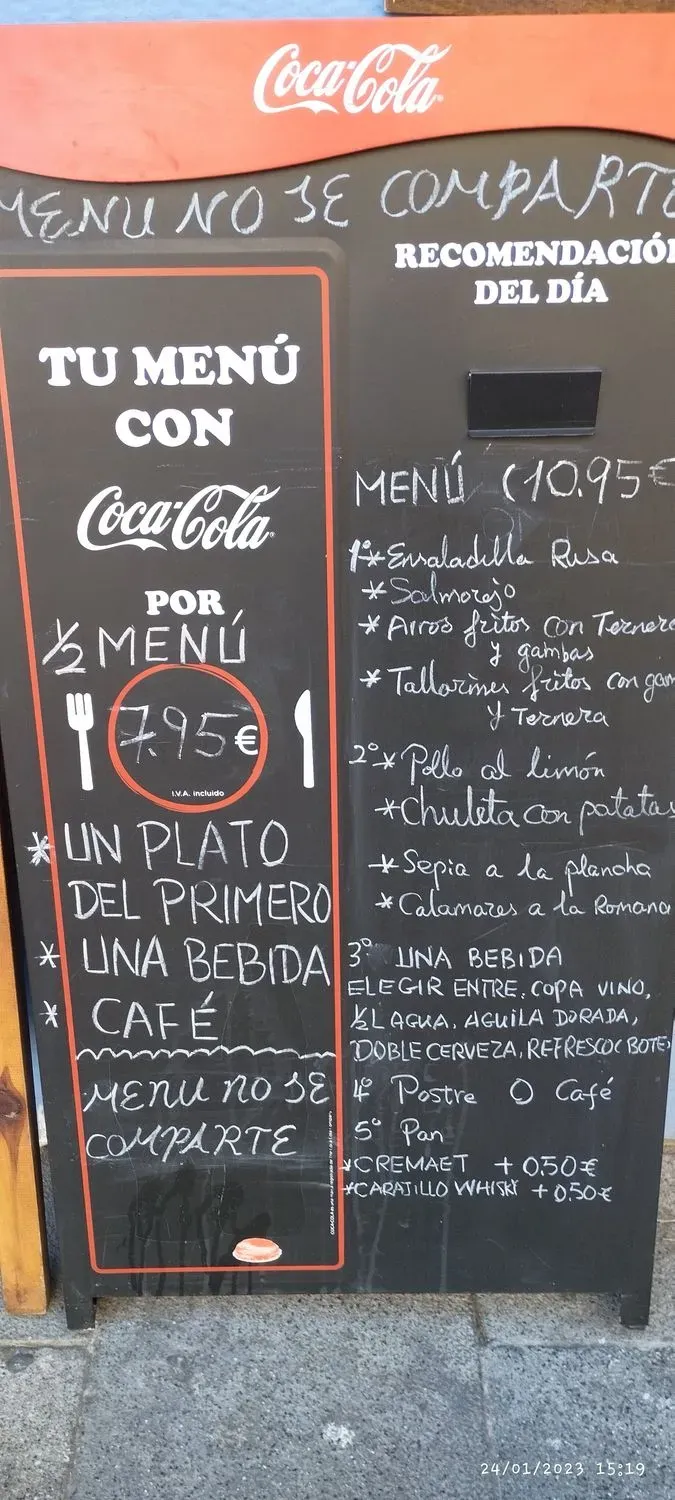 Coca-Cola
MENU NO SE COMPARTE
TU MENÚ
CON
Coca-Cola
POR
1/2 MENÚ
7.95€
I.V.A. incluido
* UN PLATO
DEL PRIMERO
* UNA BEBIDA
* CAFÉ
MENU NO SE
COMPARTE
RECOMENDACIÓN
DEL DÍA
MENÚ (10.95€
1º * Ensaladilla Rusa
* Salmorejo
* Arros fritos con Ternera
y gambas
* Tallarines fritos con gam
y Ternera
2º * Pollo al limón
* Chuleta con patatas
* Sepia a la plancha
* Calamares a la Romana
3º UNA BEBIDA
ELEGIR ENTRE. COPA VINO,
1/2 L AGUA. AGUILA DORADA,
DOBLE CERVEZA, REFRESCO( BOTE
4º Postre O Café
5º Pan
*CREMAET +0.50€
*CARAJILLO WHISKY +0.50€
24/01/2023 15:19